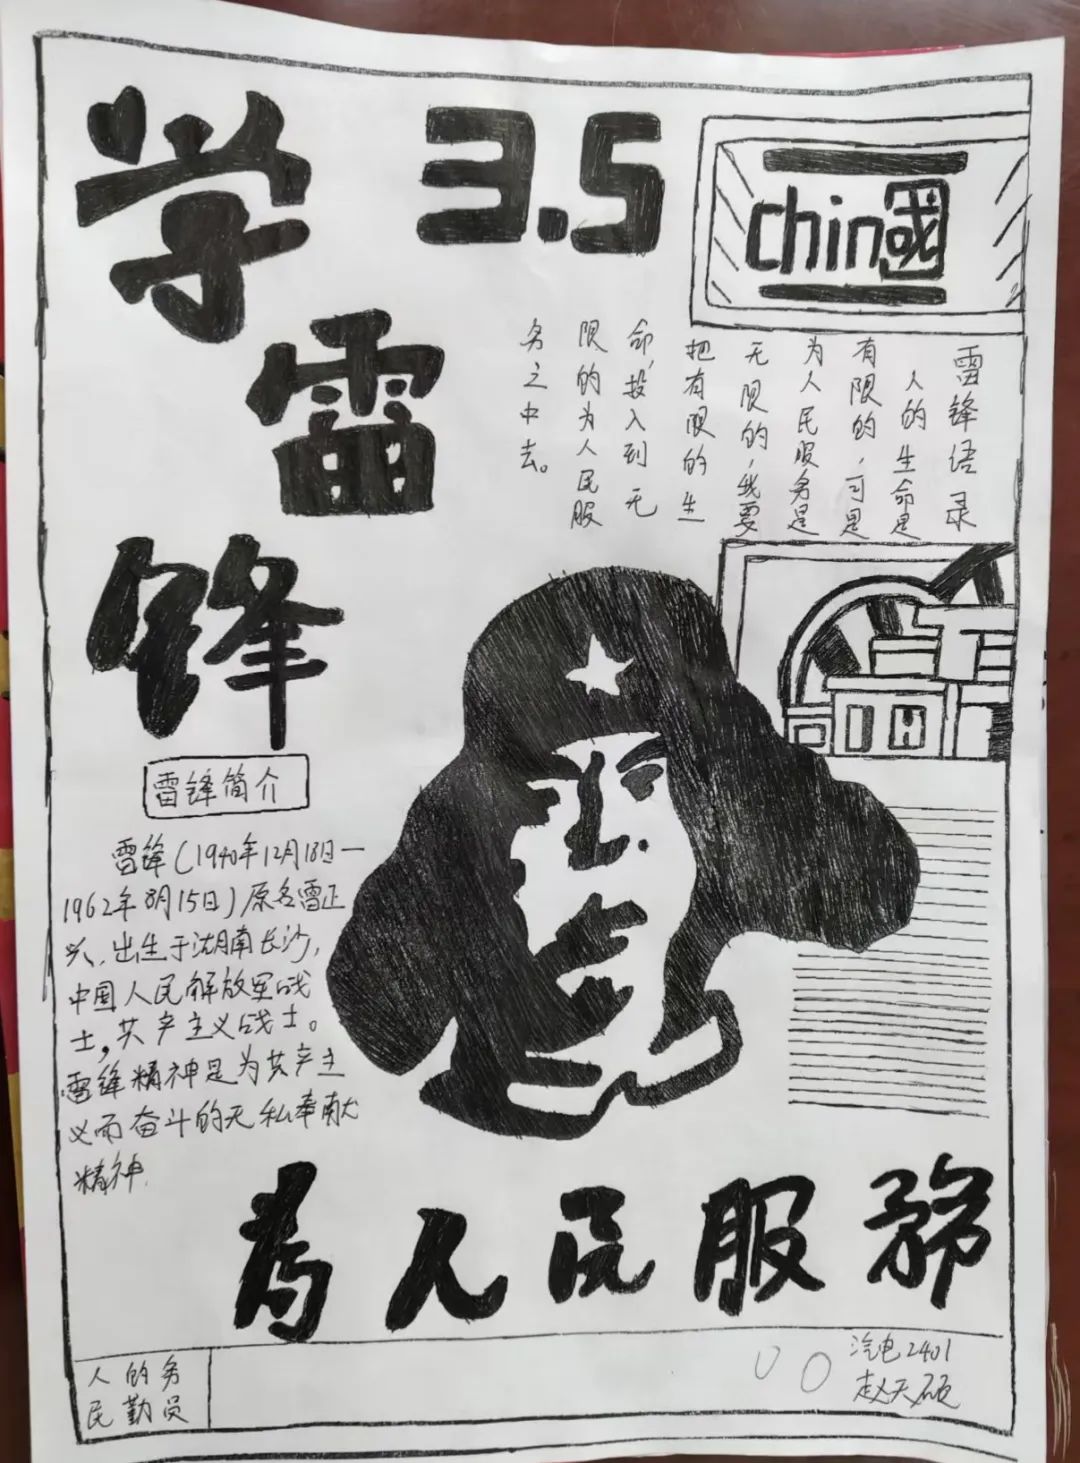 学
雷
锋
3.5
chin國
雷锋语录
人的生命是
有限的,可是
为人民服务是
无限的,我要
把有限的生
命,投入到无
限的为人民服
务之中去。
雷锋简介
雷锋(1940年12月18日—
1962年8月15日)原名雷正
兴,出生于湖南长沙,
中国人民解放军战
士,共产主义战士。
雷锋精神是为共产主
义而奋斗的无私奉献
精神.
为人民服務
人的务
民勤员
汽电2401
赵天硕